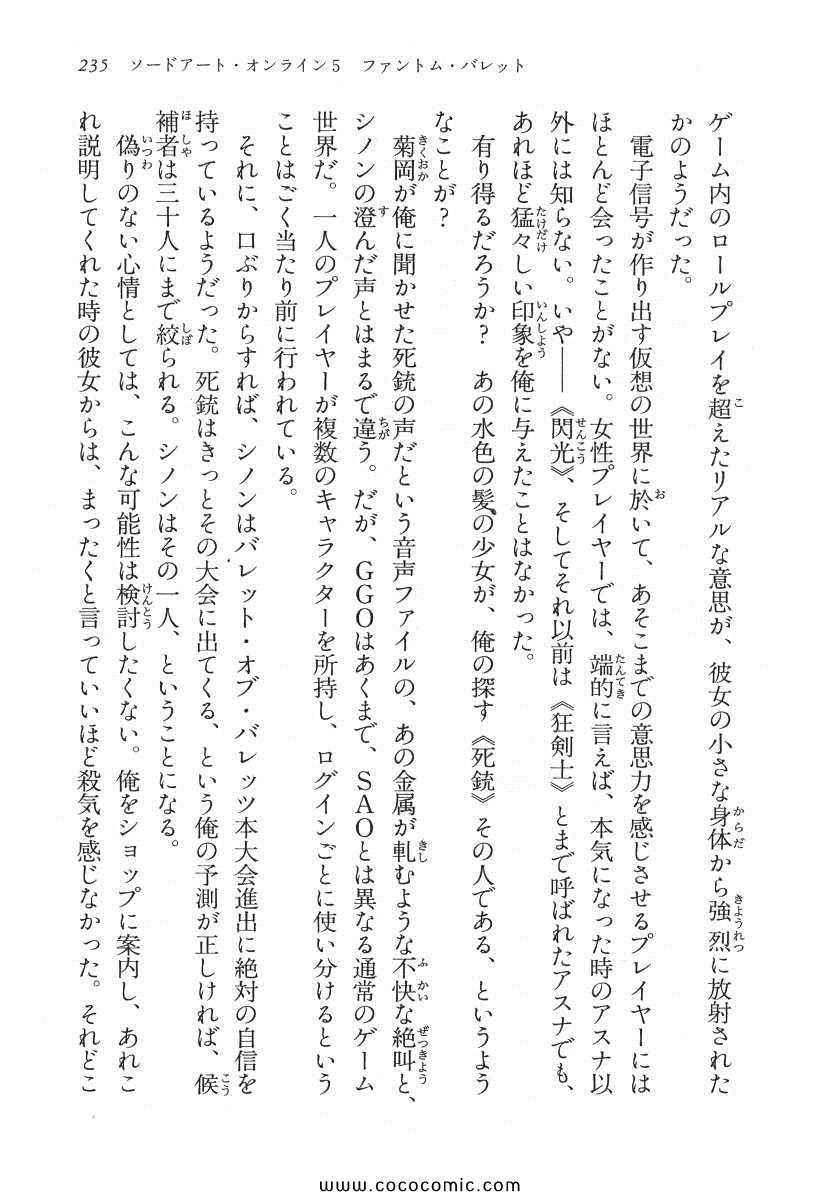 235 ソードアート・オンライン5 ファントム・バレット
ゲーム内のロールプレイを超えたリアルな意思が、彼女の小さな身体から強烈に放射された
かのようだった。
電子信号が作り出す仮想の世界に於いて、あそこまでの意思力を感じさせるプレイヤーには
ほとんど会ったことがない。女性プレイヤーでは、端的に言えば、本気になった時のアスナ以
外には知らない。いや――《閃光》、そしてそれ以前は《狂剣士》とまで呼ばれたアスナでも、
あれほど猛々しい印象を俺に与えたことはなかった。
有り得るだろうか? あの水色の髪の少女が、俺の探す《死銃》その人である、というよう
なことが?
菊岡が俺に聞かせた死銃の声だという音声ファイルの、あの金属が軋むような不快な絶叫と、
シノンの澄んだ声とはまるで違う。だが、GGOはあくまで、SAOとは異なる通常のゲーム
世界だ。一人のプレイヤーが複数のキャラクターを所持し、ログインごとに使い分けるという
ことはごく当たり前に行われている。
それに、口ぶりからすれば、シノンはバレット・オブ・バレッツ本大会進出に絶対の自信を
持っているようだった。死銃はきっとその大会に出てくる、という俺の予測が正しければ、候
補者は三十人にまで絞られる。シノンはその一人、ということになる。
偽りのない心情としては、こんな可能性は検討したくない。俺をショップに案内し、あれこ
れ説明してくれた時の彼女からは、まったくと言っていいほど殺気を感じなかった。それどこ
www.cococomic.com